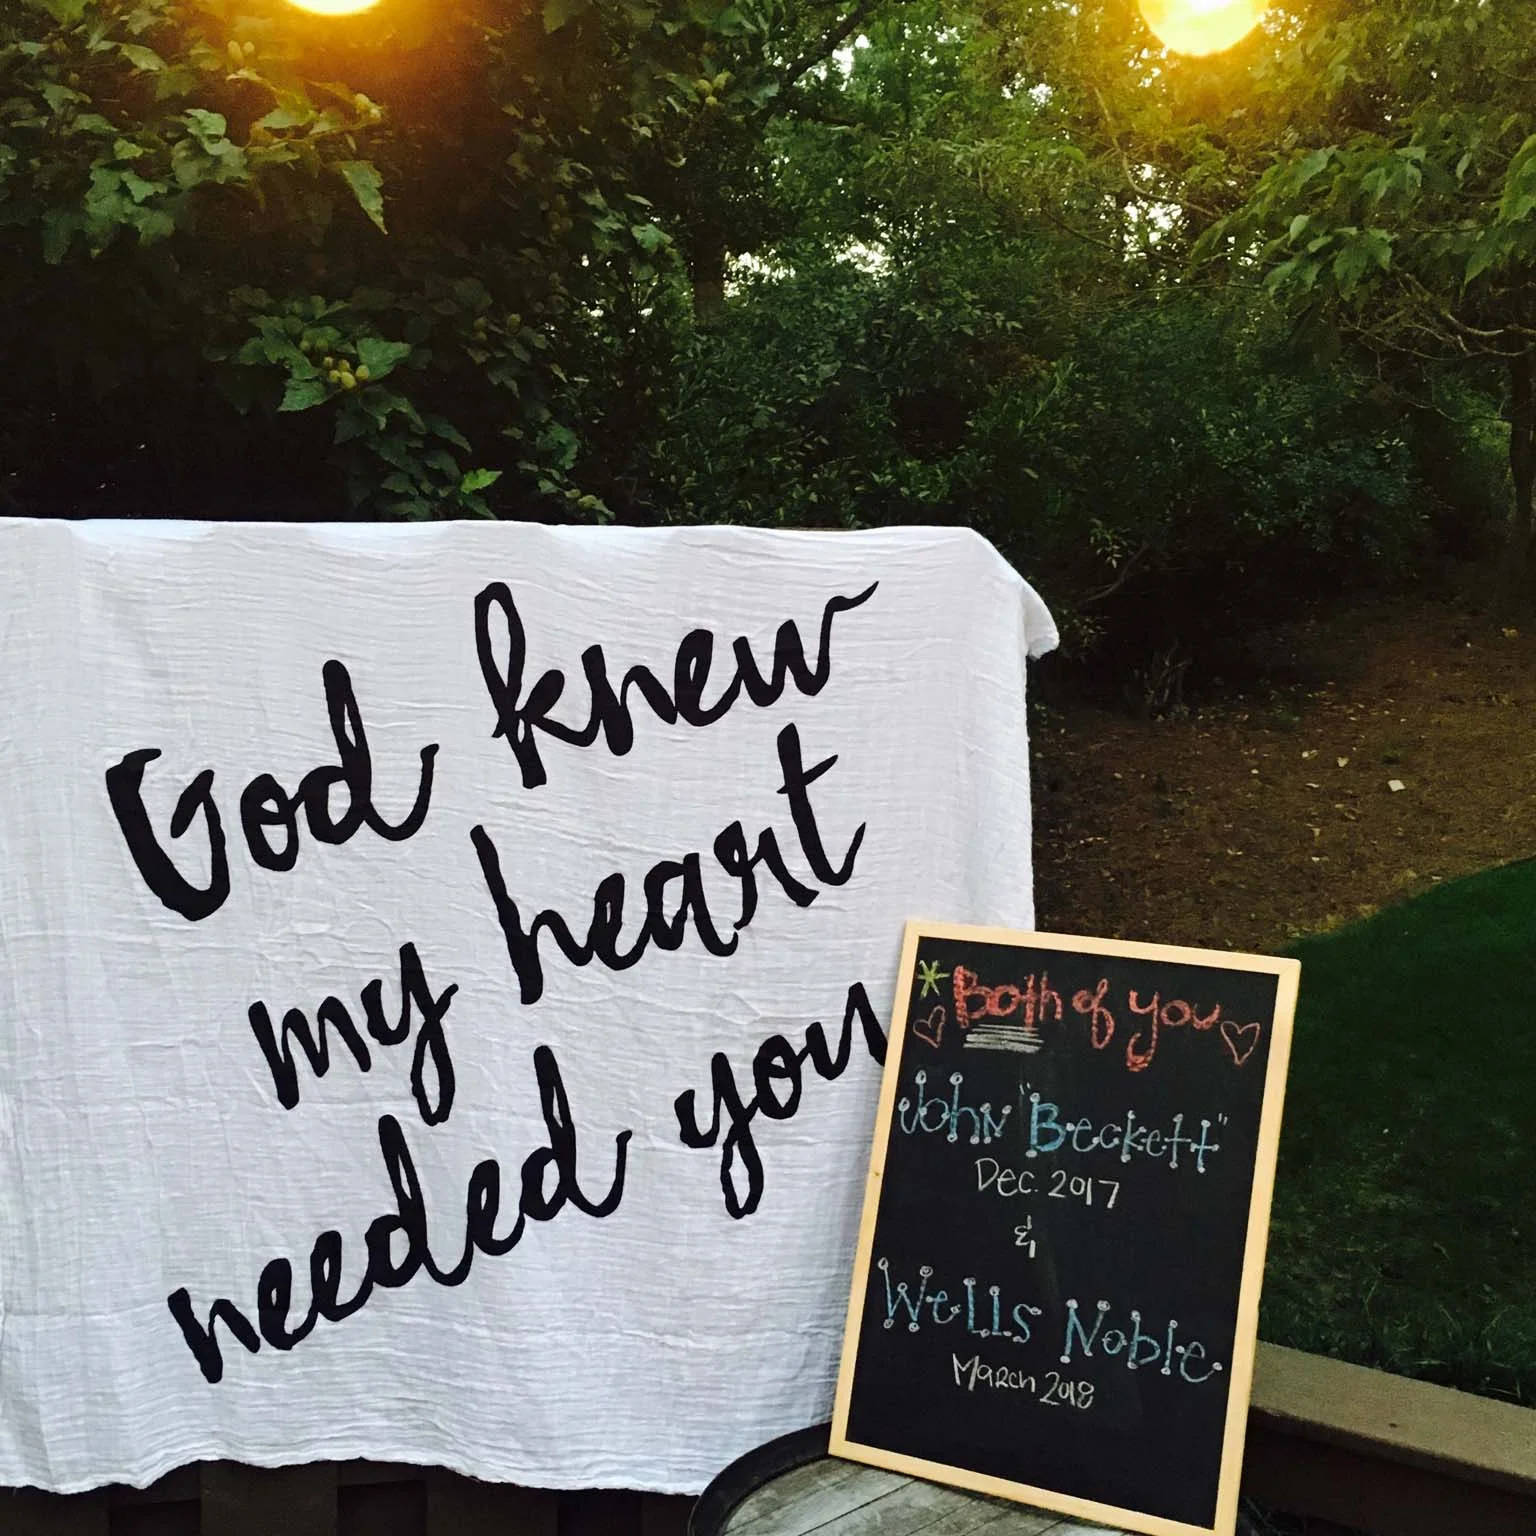 God knew
my heart
needed you
Both of you
John "Beckett"
Dec. 2017
&
Wells Noble
March 2018